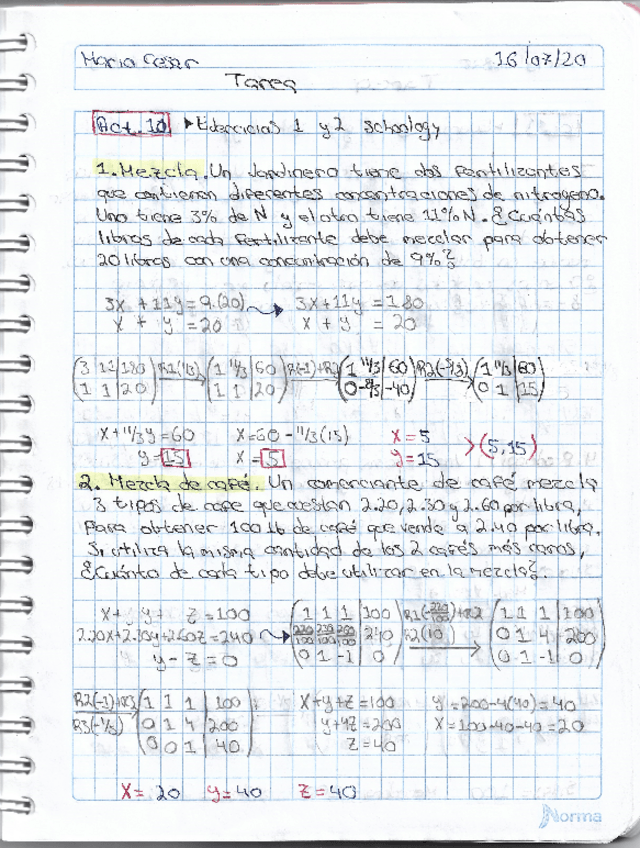 Maria Cesar 16/07/20
Tarea
Act. 10 ▸ Ejercicios 1 y 2 schoology
1. Mezcla. Un Jardinero tiene dos fentilizantes
que contienen diferentes concentraciones de nitrogeno.
Uno tiene 3% de N y el otro tiene 11% N. ¿Cuántas
libras de cada fertilizante debe mezclar para obtener
20 libras con una concentración de 9%?
3x + 11y = 9.(20) → 3x + 11y = 180
x + y = 20 x + y = 20
(3 11 | 180) R1(1/3) → (1 11/3 | 60) R1(-1)+R2 (1 11/3 | 60) R2(-3/8) → (1 11/3 | 60)
(1 1 | 20) (1 1 | 20) (0 -8/3 | -40) (0 1 | 15)
x + 11/3 y = 60 x = 60 - 11/3(15) x = 5 > (5, 15)
y = 15 x = 5 y = 15
2. Mezcla de café. Un comerciante de café mezcla
3 tipos de cafe que cuestan 2.20, 2.30 y 2.60 por libra,
Para obtener 100 lb de café que vende a 2.40 por libra.
Si utiliza la misma cantidad de los 2 cafés más caros,
¿Cuánto de cada tipo debe utilizar en la mezcla?.
x + y + z = 100 (1 1 1 | 100) R1(-220/100)+R2 (1 1 1 | 100)
2.20x + 2.30y + 2.60z = 240 → (220/100 230/100 260/100 | 240) R2(10) → (0 1 4 | 200)
y - z = 0 (0 1 -1 | 0) (0 1 -1 | 0)
R2(-1)+R3 (1 1 1 | 100) x + y + z = 100 y = 200 - 4(40) = 40
R3(-1/5) (0 1 4 | 200) y + 4z = 200 x = 100 - 40 - 40 = 20
(0 0 1 | 40) z = 40
x = 20 y = 40 z = 40
Norma